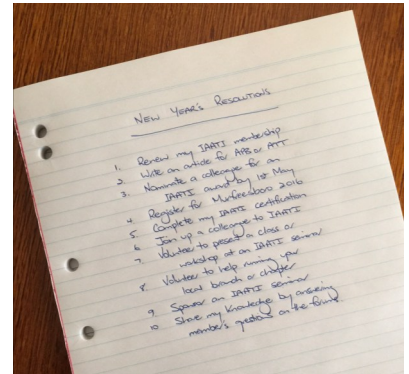 NEW YEAR'S RESOLUTIONS
1. Renew my IAATI membership
2. Write an article for APB or ATT
3. Nominate a colleague for an
IAATI award by 1st May
4. Register for Murfreesboro 2016
5. Complete my IAATI certification
6. Join up a colleague to IAATI
7. Volunteer to present a class or
workshop at an IAATI seminar
8. Volunteer to help running your
local branch or chapter
9. Sponsor an IAATI seminar
10. Share my knowledge by answering
member's questions on the forums